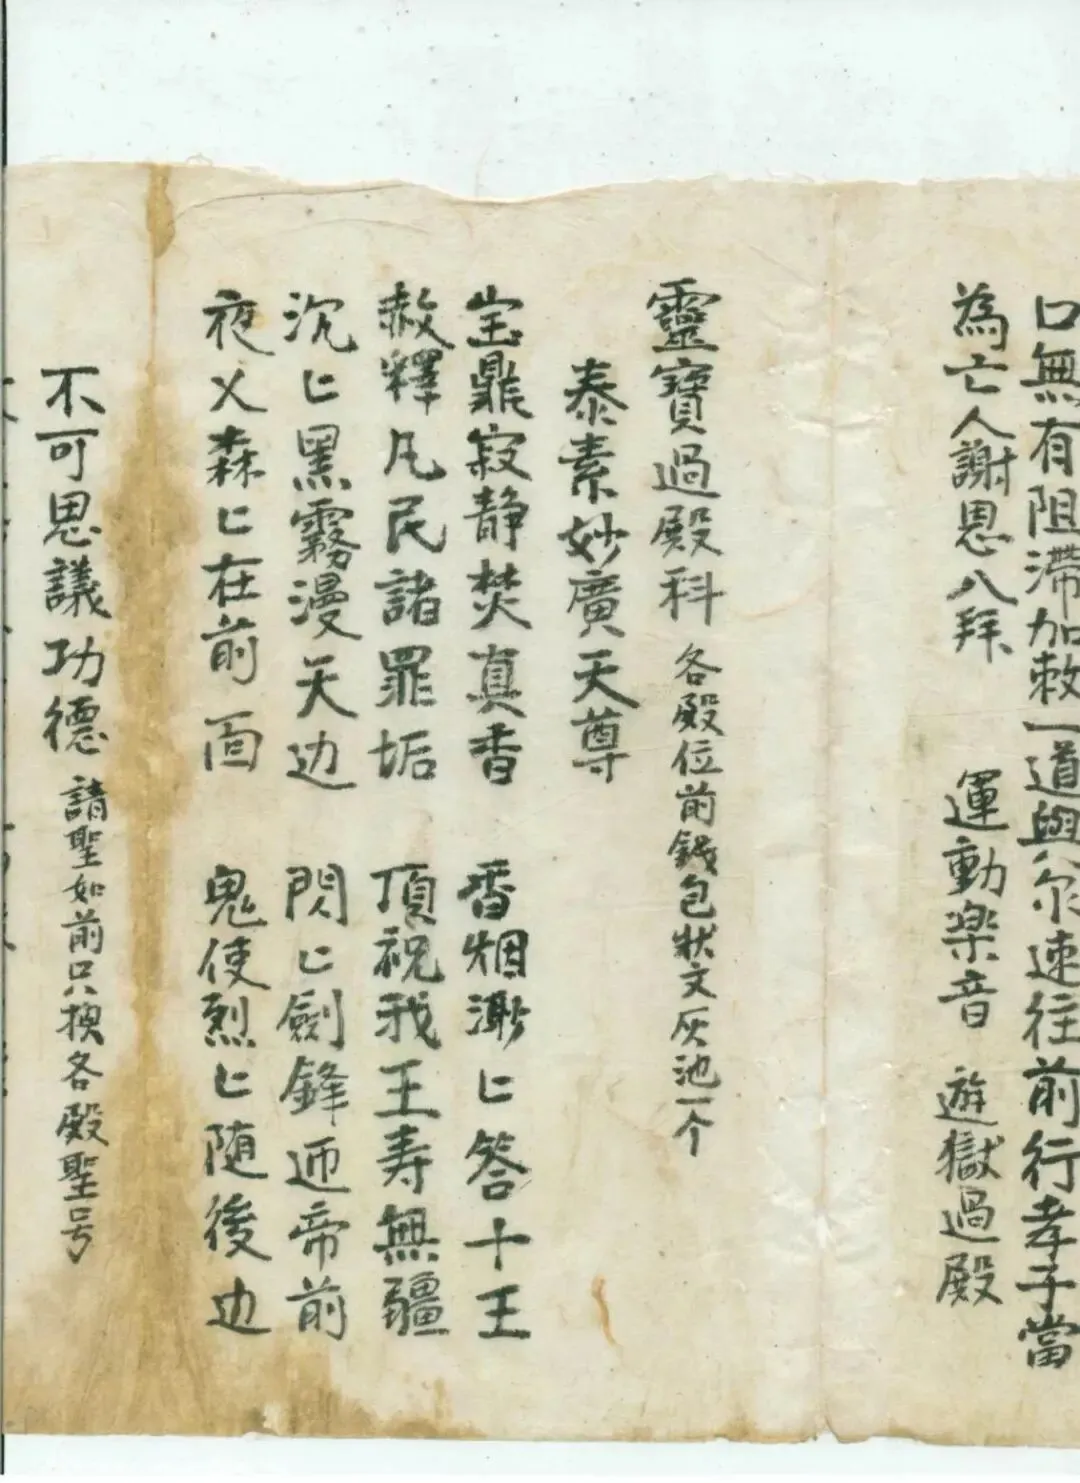 口無有阻滯加敕一道與尔速往前行孝子當
為亡人謝恩八拜 運動楽音 遊獄過殿
靈寶過殿科 各殿位前錢包狀文灰池一个
泰素妙廣天尊
宝鼎寂静焚真香 香烟渺匕答十王
赦釋凡民諸罪垢 頂祝我王寿無疆
沉匕黑霧漫天边 閃匕劍鋒迊帝前
夜乂森匕在前面 鬼使烈匕随後边
不可思議功德 請聖如前只换各殿聖号